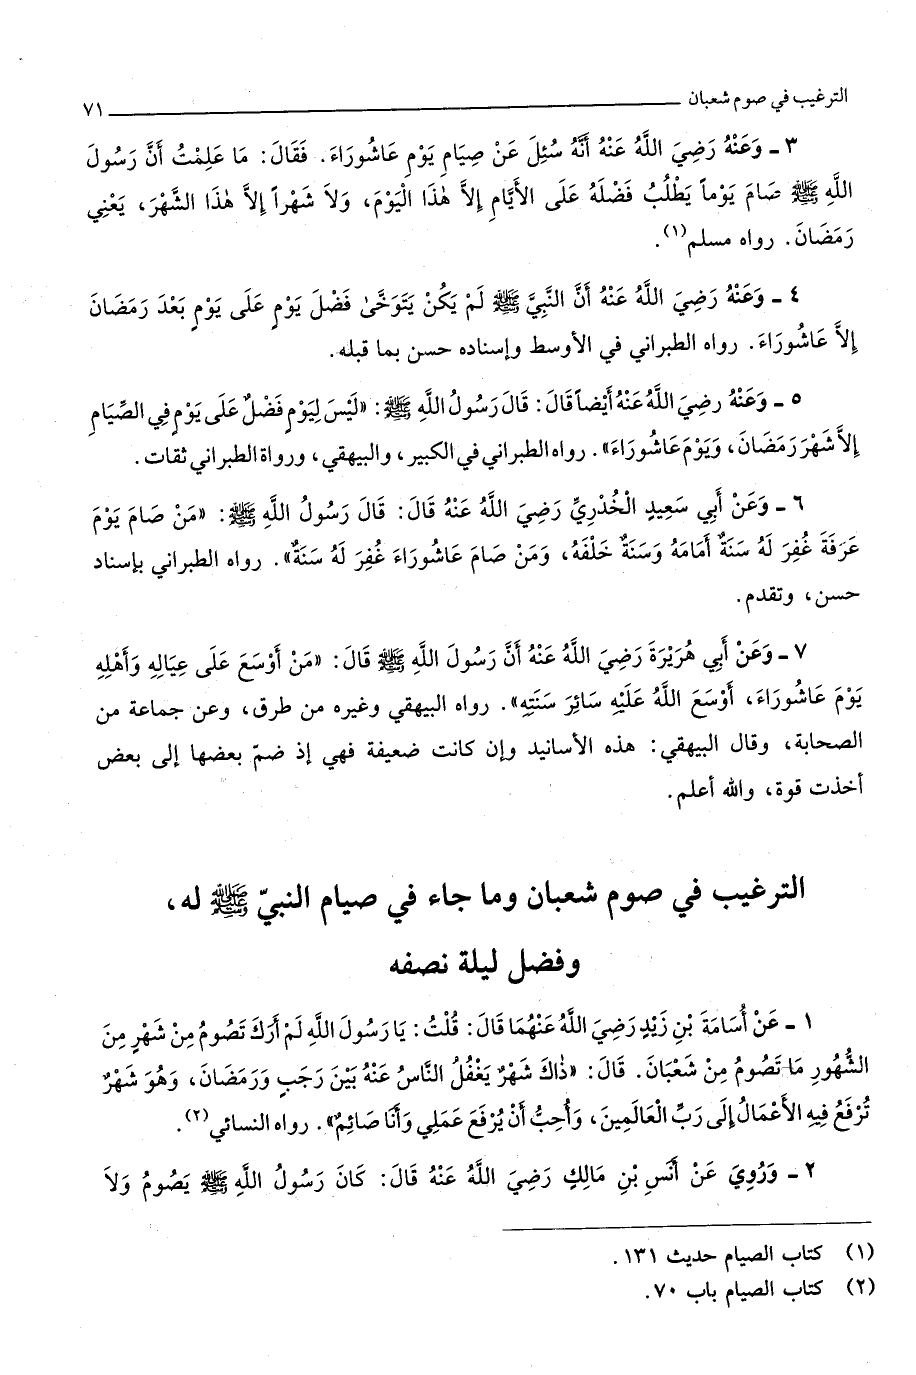 الترغيب في صوم شعبان ٧١
٣ ـ وَعَنْهُ رَضِيَ اللَّهُ عَنْهُ أَنَّهُ سُئِلَ عَنْ صِيَامِ يَوْمِ عَاشُورَاءَ. فَقَالَ: مَا عَلِمْتُ أَنَّ رَسُولَ
اللَّهِ ﷺ صَامَ يَوْماً يَطْلُبُ فَضْلَهُ عَلَى الأَيَّامِ إِلاَّ هٰذَا الْيَوْمَ، وَلاَ شَهْراً إِلاَّ هٰذَا الشَّهْرَ، يَعْنِي
رَمَضَانَ. رواه مسلم(١).
٤ ـ وَعَنْهُ رَضِيَ اللَّهُ عَنْهُ أَنَّ النَّبِيَّ ﷺ لَمْ يَكُنْ يَتَوَخَّىٰ فَضْلَ يَوْمٍ عَلَى يَوْمٍ بَعْدَ رَمَضَانَ
إِلاَّ عَاشُورَاءَ. رواه الطبراني في الأوسط وإسناده حسن بما قبله.
٥ ـ وَعَنْهُ رضِيَ اللَّهُ عَنْهُ أَيْضاً قَالَ: قَالَ رَسُولُ اللَّهِ ﷺ: «لَيْسَ لِيَوْمٍ فَضْلٌ عَلَى يَوْمٍ فِي الصِّيَامِ
إِلاَّ شَهْرَ رَمَضَانَ، وَيَوْمَ عَاشُورَاءَ». رواه الطبراني في الكبير، والبيهقي، ورواة الطبراني ثقات.
٦ ـ وَعَنْ أَبِي سَعِيدٍ الْخُدْرِيِّ رَضِيَ اللَّهُ عَنْهُ قَالَ: قَالَ رَسُولُ اللَّهِ ﷺ: «مَنْ صَامَ يَوْمَ
عَرَفَةَ غُفِرَ لَهُ سَنَةٌ أَمَامَهُ وَسَنَةٌ خَلْفَهُ، وَمَنْ صَامَ عَاشُورَاءَ غُفِرَ لَهُ سَنَةٌ». رواه الطبراني بإسناد
حسن، وتقدم.
٧ ـ وَعَنْ أَبِي هُرَيْرَةَ رَضِيَ اللَّهُ عَنْهُ أَنَّ رَسُولَ اللَّهِ ﷺ قَالَ: «مَنْ أَوْسَعَ عَلَى عِيَالِهِ وَأَهْلِهِ
يَوْمَ عَاشُورَاءَ، أَوْسَعَ اللَّهُ عَلَيْهِ سَائِرَ سَنَتِهِ». رواه البيهقي وغيره من طرق، وعن جماعة من
الصحابة، وقال البيهقي: هذه الأسانيد وإن كانت ضعيفة فهي إذ ضمّ بعضها إلى بعض
أخذت قوة، والله أعلم.
الترغيب في صوم شعبان وما جاء في صيام النبيّ ﷺ له،
وفضل ليلة نصفه
١ ـ عَنْ أُسَامَةَ بْنِ زَيْدٍ رَضِيَ اللَّهُ عَنْهُمَا قَالَ: قُلْتُ: يَا رَسُولَ اللَّهِ لَمْ أَرَكَ تَصُومُ مِنْ شَهْرٍ مِنَ
الشُّهُورِ مَا تَصُومُ مِنْ شَعْبَانَ. قَالَ: «ذٰاكَ شَهْرٌ يَغْفُلُ النَّاسُ عَنْهُ بَيْنَ رَجَبٍ وَرَمَضَانَ، وَهُوَ شَهْرٌ
تُرْفَعُ فِيهِ الأَعْمَالُ إِلَى رَبِّ الْعَالَمِينَ، وَأُحِبُّ أَنْ يُرْفَعَ عَمَلِي وَأَنَا صَائِمٌ». رواه النسائي(٢).
٢ ـ وَرُوِيَ عَنْ أَنَسِ بْنِ مَالِكٍ رَضِيَ اللَّهُ عَنْهُ قَالَ: كَانَ رَسُولُ اللَّهِ ﷺ يَصُومُ وَلاَ
(١) كتاب الصيام حديث ١٣١.
(٢) كتاب الصيام باب ٧٠.